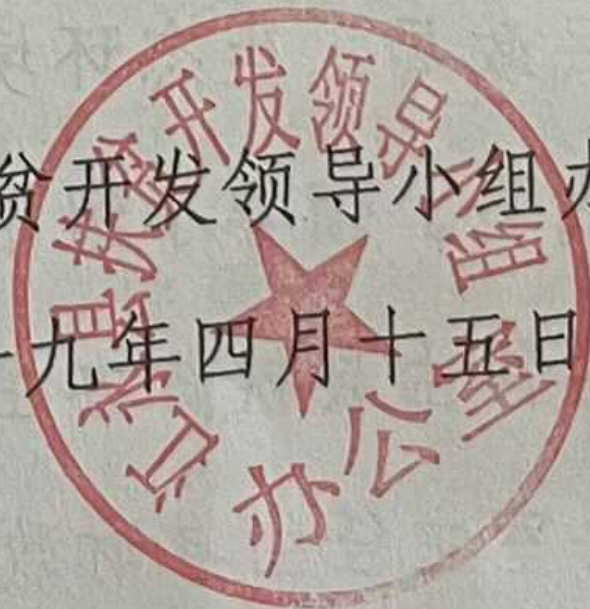 贫开发领导小组办
九年四月十五日
县扶贫开发领导小组
办公室